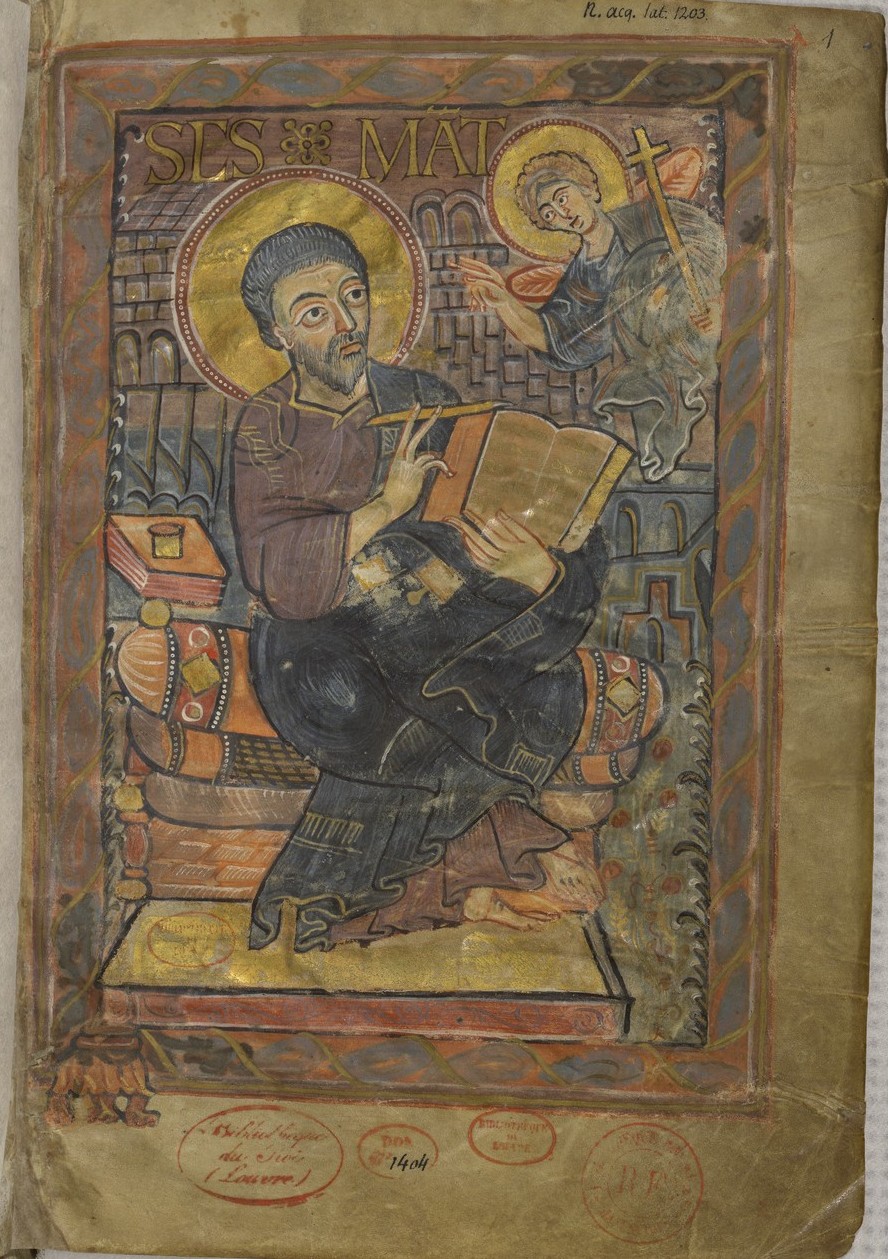 N. acq. lat. 1203.
1
SCS MAT
Bibliothèque
du Roi
(Louvre)
DON
1404
BIBLIOTHÈQUE
DU
LOUVRE